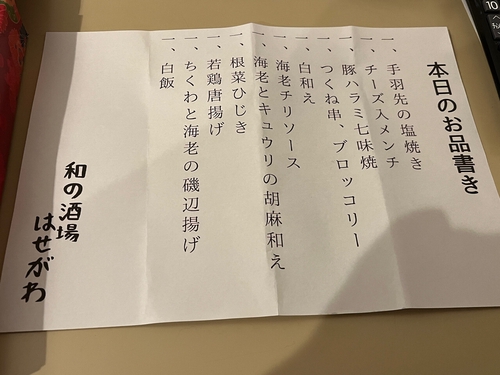 本日のお品書き
一、手羽先の塩焼き
一、チーズ入メンチ
一、豚ハラミ七味焼
一、つくね串、ブロッコリー
一、白和え
一、海老チリソース
一、海老とキュウリの胡麻和え
一、根菜ひじき
一、若鶏唐揚げ
一、ちくわと海老の磯辺揚げ
一、白飯
和の酒場
はせがわ